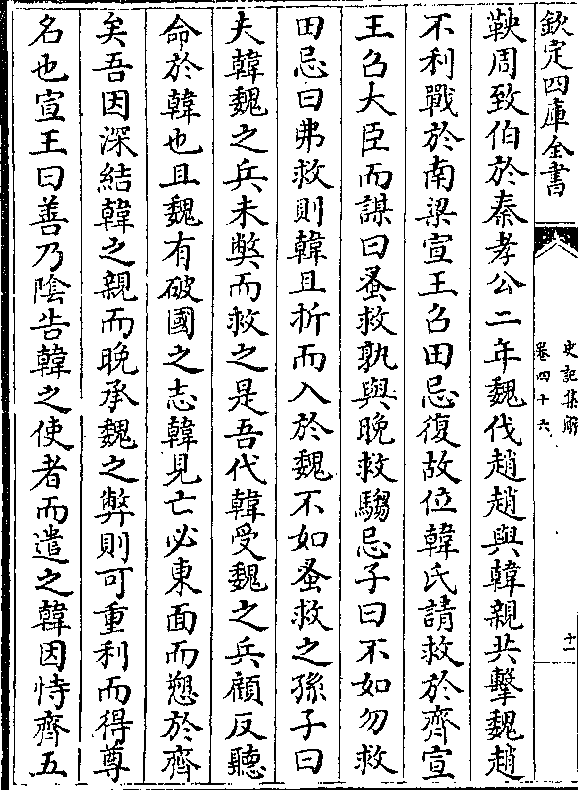 欽定四庫全書
史記集解
卷四十六
十一
鞅周致伯於秦孝公二年魏伐趙趙與韓親共擊魏趙
不利戰於南梁宣王召田忌復故位韓氏請救於齊宣
王召大臣而謀曰蚤救孰與晚救騶忌子曰不如勿救
田忌曰弗救則韓且折而入於魏不如蚤救之孫子曰
夫韓魏之兵未獘而救之是吾代韓受魏之兵顧反聽
命於韓也且魏有破國之志韓見亡必東面而愬於齊
矣吾因深結韓之親而晚承魏之弊則可重利而得尊
名也宣王曰善乃陰告韓之使者而遣之韓因恃齊五